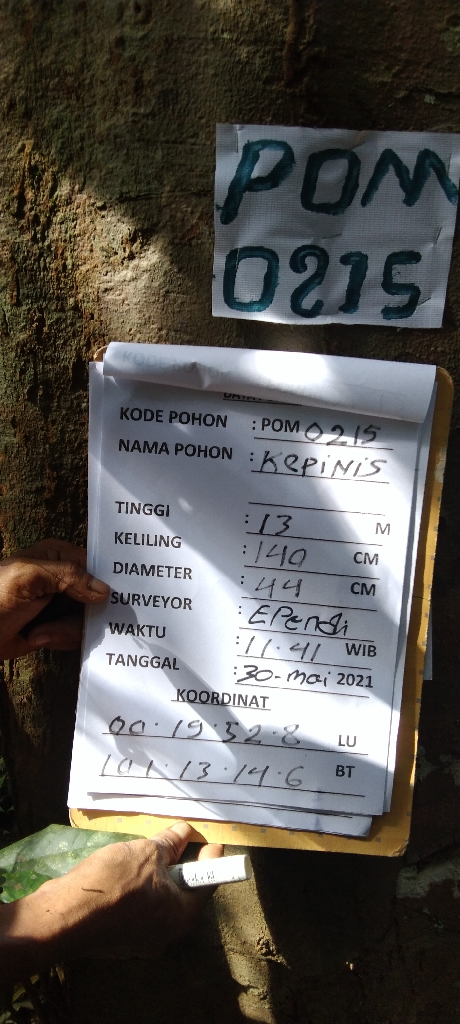 POM
0215
KODE POHON : POM 0215
NAMA POHON : KEPINIS
TINGGI : 13 M
KELILING : 140 CM
DIAMETER : 44 CM
SURVEYOR : EPendi
WAKTU : 11.41 WIB
TANGGAL : 30-mai 2021
KOORDINAT
00.19.52.8 LU
101.13.14.6 BT